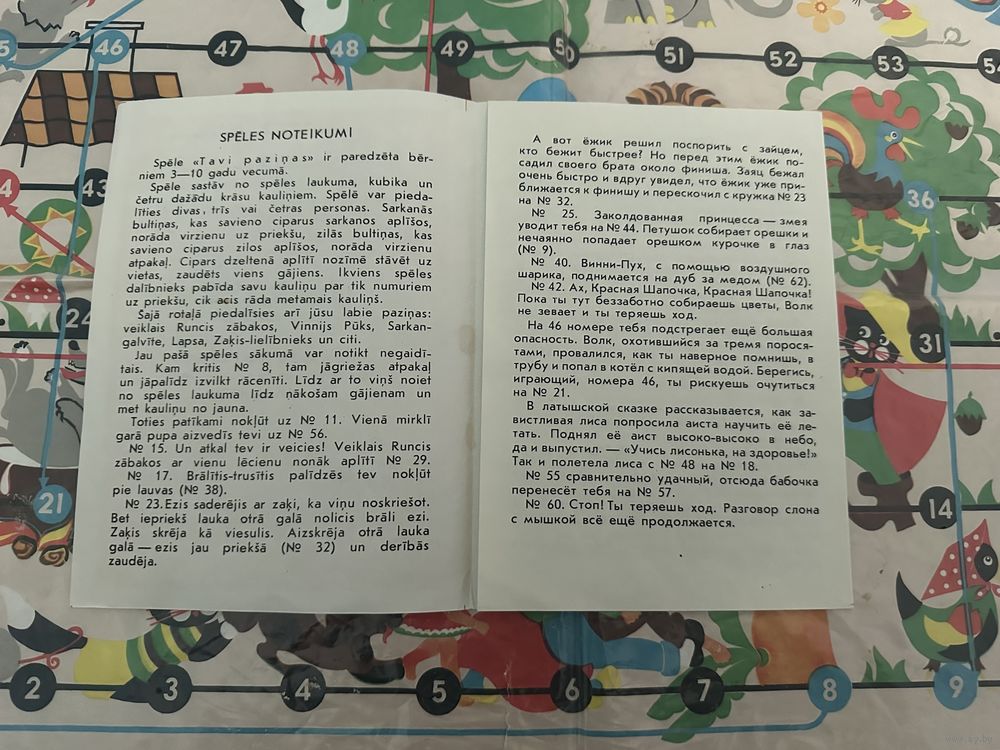 46
47
48
49
50
51
52
53
54
SPĒLES NOTEIKUMI
Spēle «Tavi paziņas» ir paredzēta bēr-
niem 3—10 gadu vecumā.
Spēle sastāv no spēles laukuma, kubika un
četru dažādu krāsu kauliņiem. Spēlē var pieda-
līties divas, trīs vai četras personas. Sarkanās
bultiņas, kas savieno ciparus sarkanos aplīšos,
norāda virzienu uz priekšu, zilās bultiņas, kas
savieno ciparus zilos aplīšos, norāda virzienu
atpakaļ. Cipars dzeltenā aplītī nozīmē stāvēt uz
vietas, zaudēts viens gājiens. Ikviens spēles
dalībnieks pabīda savu kauliņu par tik numuriem
uz priekšu, cik acis rāda metamais kauliņš.
Šajā rotaļā piedalīsies arī jūsu labie paziņas:
veiklais Runcis zābakos, Vinnijs Pūks, Sarkan-
galvīte, Lapsa, Zaķis-lielībnieks un citi.
Jau pašā spēles sākumā var notikt negaidī-
tais. Kam kritis № 8, tam jāgriežas atpakaļ
un jāpalīdz izvilkt rācenīti. Līdz ar to viņš noiet
no spēles laukuma līdz nākošam gājienam un
met kauliņu no jauna.
Toties patīkami nokļūt uz № 11. Vienā mirklī
garā pupa aizvedīs tevi uz № 56.
№ 15. Un atkal tev ir veicies! Veiklais Runcis
zābakos ar vienu lēcienu nonāk aplītī № 29.
№ 17. Brālītis-trusītis palīdzēs tev nokļūt
pie lauvas (№ 38).
№ 23. Ezis saderējis ar zaķi, ka viņu noskriešot.
Bet iepriekš lauka otrā galā nolicis brāli ezi.
Zaķis skrēja kā viesulis. Aizskrēja otrā lauka
galā — ezis jau priekšā (№ 32) un derībās
zaudēja.
А вот ёжик решил поспорить с зайцем,
кто бежит быстрее? Но перед этим ёжик по-
садил своего брата около финиша. Заяц бежал
очень быстро и вдруг увидел, что ёжик уже при-
ближается к финишу и перескочил с кружка № 23
на № 32.
№ 25. Заколдованная принцесса — змея
уводит тебя на № 44. Петушок собирает орешки и
нечаянно попадает орешком курочке в глаз
(№ 9).
№ 40. Винни-Пух, с помощью воздушного
шарика, поднимается на дуб за медом (№ 62).
№ 42. Ах, Красная Шапочка, Красная Шапочка!
Пока ты тут беззаботно собираешь цветы, Волк
не зевает и ты теряешь ход.
На 46 номере тебя подстрегает ещё большая
опасность. Волк, охотившийся за тремя порося-
тами, провалился, как ты наверное помнишь, в
трубу и попал в котёл с кипящей водой. Берегись,
играющий, номера 46, ты рискуешь очутиться
на № 21.
В латышской сказке рассказывается, как за-
вистливая лиса попросила аиста научить её ле-
тать. Поднял её аист высоко-высоко в небо,
да и выпустил. — «Учись лисонька, на здоровье!»
Так и полетела лиса с № 48 на № 18.
№ 55 сравнительно удачный, отсюда бабочка
перенесёт тебя на № 57.
№ 60. Стоп! Ты теряешь ход. Разговор слона
с мышкой всё ещё продолжается.
43
36
24
31
21
14
2
3
4
5
6
7
8
9